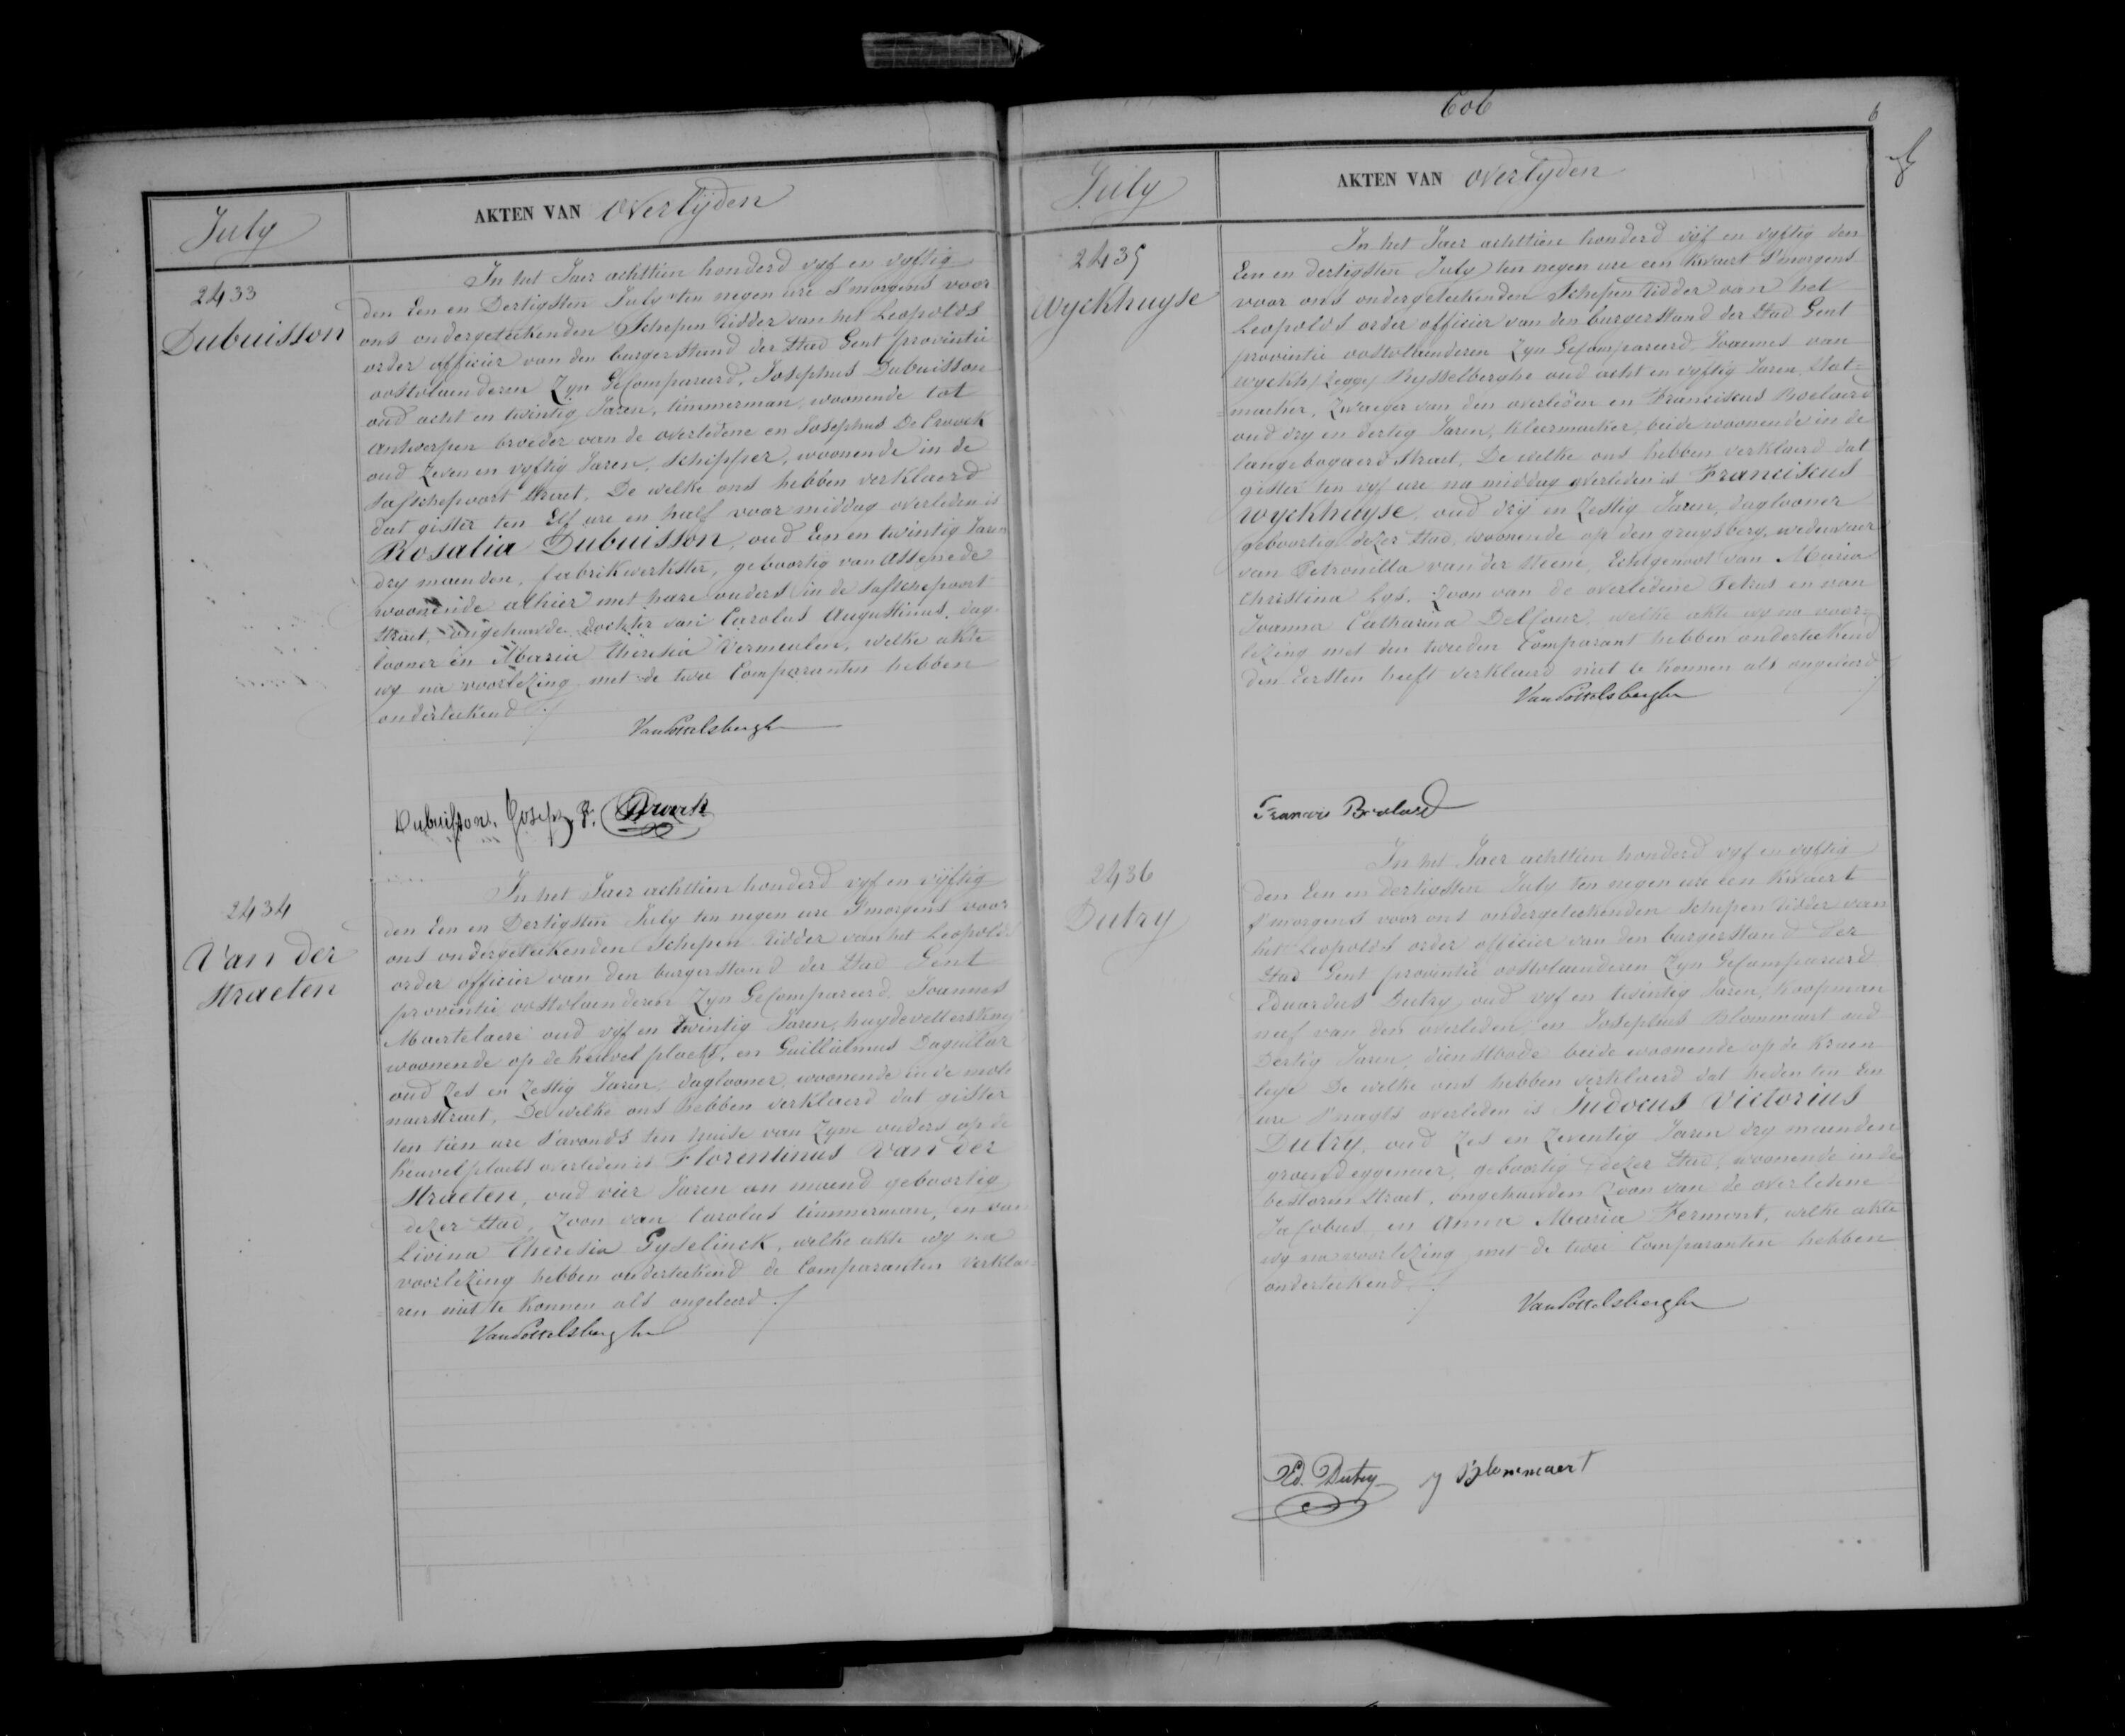 July
AKTEN VAN Overlÿden
2433
Dubuisson
In het Jaer achttien honderd vyf en vyftig
den Een en Dertigsten July ten negen ure S'morgens voor
ons ondergeteekenden Schepen Ridder van het Leopolds
order officier van den burgerstand der Stad Gent provintie
oostvlaenderen Zyn Gecompareerd, Josephus Dubuisson
oud acht en twintig Jaren, timmerman, woonende tot
antwerpen broeder van de overledene en Josephus De Croock
oud Zeven en vyftig Jaren, Schipper, woonende in de
Saftchepoort Straet, De welke ons hebben verklaerd
dat gister ten Elf ure en half voor middag overleden is
Rosalia Dubuisson, oud Een en twintig Jaren
dry maenden, fabrikwerkster, geboortig van Assenede
woonende alhier met hare ouders in de Saftchepoort
Straet, ongehuwde dochter van Carolus Augustinus, dag-
looner en Maria Theresia Vermeulen, welke akte
wy na voorlezing met de twee Comparanten hebben
onderteekend ./
VanPottelsberghe
Dubuisson Joseph J. DCroock
2434
Van der
Straeten
In het Jaer achttien honderd vyf en vÿftig
den Een en Dertigsten July ten negen ure S'morgens voor
ons ondergeteekenden Schepen Ridder van het Leopolds
order officier van den burgerstand der Stad Gent
provintie oostvlaenderen Zyn Gecompareerd, Joannes
Maertelaere oud vyf en twintig Jaren, huydevettersknegt
woonende op de heuvel plaets, en Guillielmus Daguilar
oud Zes en Zestig Jaren, daglooner, woonende in de mole
naerstraet, De welke ons hebben verklaerd dat gister
ten tien ure S'avonds ten huise van Zyne ouders op de
heuvelplaets overleden is Florentinus Van der
Straeten, oud vier Jaren en maend geboortig
dezer Stad, Zoon van Carolus timmerman, en van
Livina Theresia Gyselinck, welke akte wy na
voorlezing hebben onderteekend de Comparanten verkla-
ren niet te konnen als ongeleerd ./
VanPottelsberghe
606
6
July
AKTEN VAN Overlyden
2435
Wyckhuyse
In het Jaer achttien honderd vÿf en vyftig den
Een en dertigsten July ten negen ure een kwaert S'morgens
voor ons ondergeteekenden Schepen Ridder van het
Leopolds order officier van den burgerstand der Stad Gent
provintie oostvlaenderen Zyn Gecompareerd, Joannes van
Rysselberghe oud acht en vyftig Jaren,
maeker, Zwaeger van den overleden en Franciscus Roelaerd
oud dry en dertig Jaren, kleermaeker, beide woonende in de
langebogaerd Straet, De welke ons hebben verklaerd dat
gister ten vyf ure na middag overleden is Franciscus
Wyckhuyse, oud drÿ en Zestig Jaren, daglooner
geboortig dezer Stad, woonende op den gruysberg, weduwaer
van Petronilla van der Steene, Echtgenoot van Maria
Christina Lys. Zoon van de overledene Petrus en van
Joanna Catharina Delfour, welke akte wy na voor-
lezing met den tweeden Comparant hebben onderteekend
den Eersten heeft verklaerd niet te konnen als ongeleerd ./
VanPottelsberghe
Francois Roelaerd
2436
Dutry
In het Jaer achttien honderd vyf en vyftig
den Een en dertigsten July ten negen ure een kwaert
S'morgens voor ons ondergeteekenden Schepen Ridder van
het Leopolds order officier van den burgerstand der
Stad Gent provintie oostvlaenderen Zyn Gecompareerd
Eduardus Dutry oud vyf en twintig Jaren, koopman
neef van den overleden, en Josephus Blommaert oud
Dertig Jaren, dienstbode beide woonende op de kraen
leye De welke ons hebben verklaerd dat heden ten Een
ure S'nagts overleden is Judocus Victorius
Dutry, oud Zes en Zeventig Jaren dry maenden
grondeygenaer, geboortig dezer Stad, woonende in de
bestorm Straet, ongehuwden Zoon van de overledene
Jacobus, en Anna Maria Fermont, welke akte
wy na voorlezing met de twee Comparanten hebben
onderteekend ./
VanPottelsberghe
Ed. Dutry J Blommaert